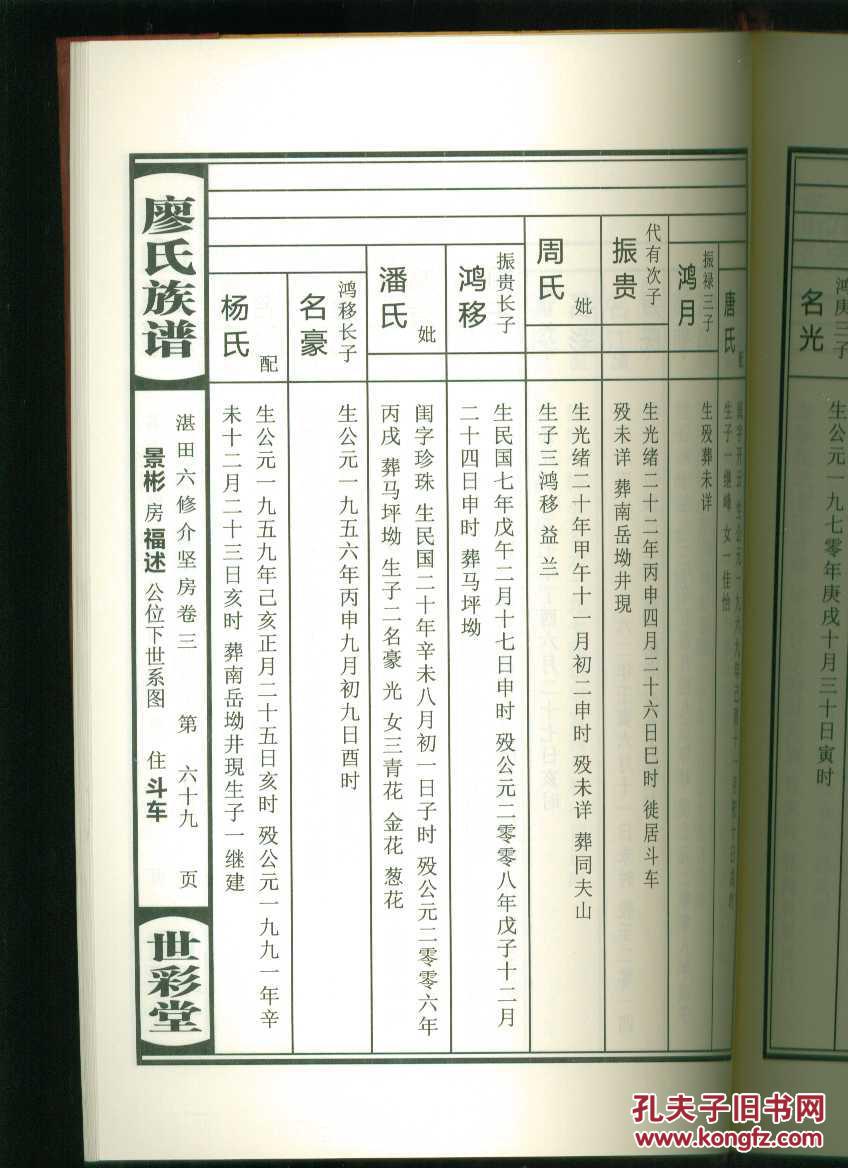 鸿庚三子
名光
生公元一九七零年庚戌十月三十日寅时
唐氏
生子一继峰 女一佳怡
振禄三子
鸿月
生殁葬未详
代有次子
振贵
生光绪二十二年丙申四月二十六日巳时 徙居斗车
殁未详 葬南岳坳井現
妣
周氏
生光绪二十年甲午十一月初二申时 殁未详 葬同夫山
生子三鸿移 益 兰
振贵长子
鸿移
生民国七年戊午二月十七日申时 殁公元二零零八年戊子十二月
二十四日申时 葬马坪坳
妣
潘氏
闺字珍珠 生民国二十年辛未八月初一日子时 殁公元二零零六年
丙戌 葬马坪坳 生子二名豪 光 女三青花 金花 葱花
鸿移长子
名豪
生公元一九五六年丙申九月初九日酉时
配
杨氏
生公元一九五九年己亥正月二十五日亥时 殁公元一九九一年辛
未十二月二十三日亥时 葬南岳坳井現生子一继建
廖氏族谱
湛田六修介坚房卷三 第 六十九 页
景彬房福述公位下世系图 住斗车
世彩堂
孔夫子旧书网
www.kongfz.com